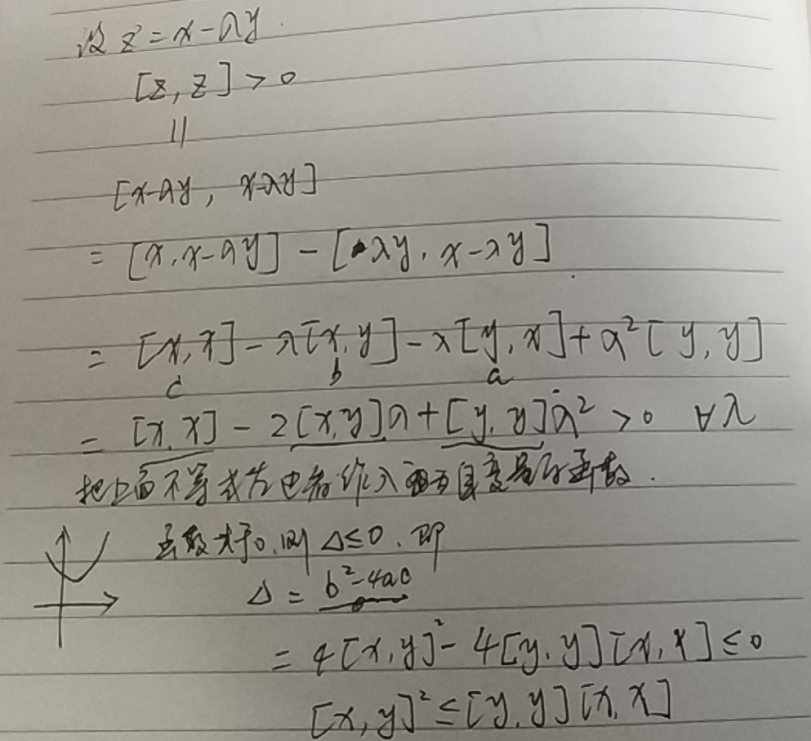 设 z = x - λy.
[z, z] > 0
||
[x-λy, x-λy]
= [x, x-λy] - [λy, x-λy]
= [x, x] - λ[x, y] - λ[y, x] + λ² [y, y]
c b a
= [x, x] - 2[x, y]λ + [y, y]λ² > 0 ∀λ
把上面不等式左边看作 λ 为自变量的函数.
函数大于0, 则 Δ≤0, 即
Δ = b²-4ac
= 4[x, y]² - 4[y, y][x, x] ≤ 0
[x, y]² ≤ [y, y][x, x]